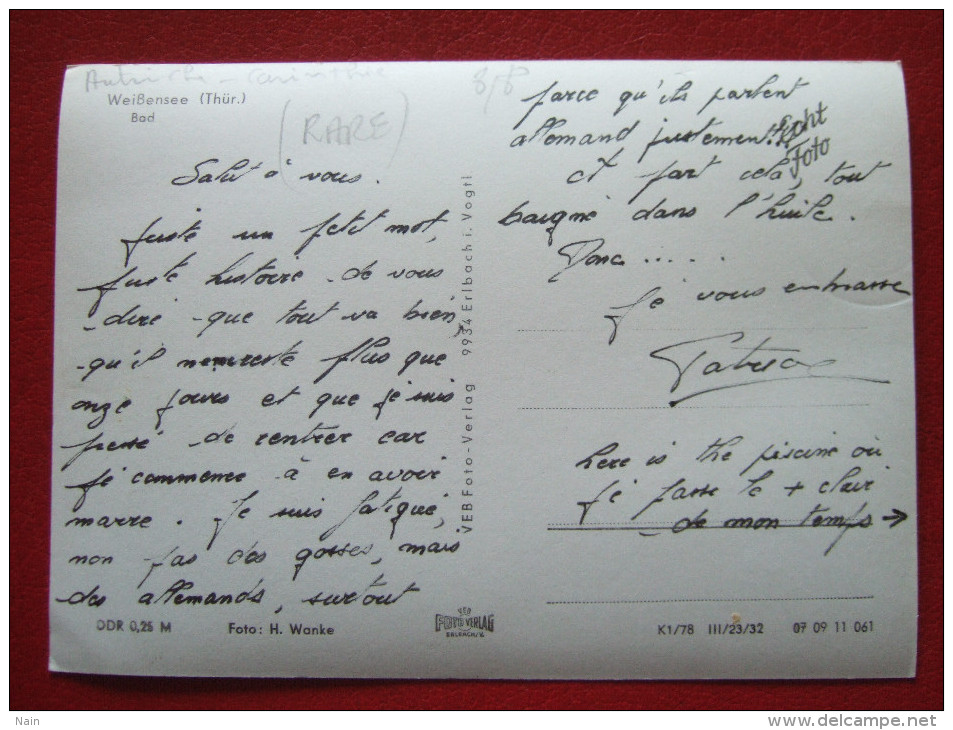 Autriche - Carinthie
8/8
Weißensee (Thür.)
Bad
(RARE)
Salut à vous.
juste un petit mot,
juste histoire de vous
dire que tout va bien,
qu'il ne reste plus que
onze jours et que je suis
pressé de rentrer car
je commence à en avoir
marre. Je suis fatigué,
non pas des gosses, mais
des allemands, surtout
DDR 0,25 M
Foto: H. Wanke
VEB Foto-Verlag 9934 Erlbach i. Vogtl
parce qu'ils parlent
allemand justement.
Echt
Foto
et part cela, tout
baigne dans l'huile.
Donc .....
Je vous embrasse
here is the piscine où
je passe le + clair
de mon temps →
FOTO VERLAG
ERLBACH/V.
K1/78 III/23/32 07 09 11 061
Nain
www.delcampe.net